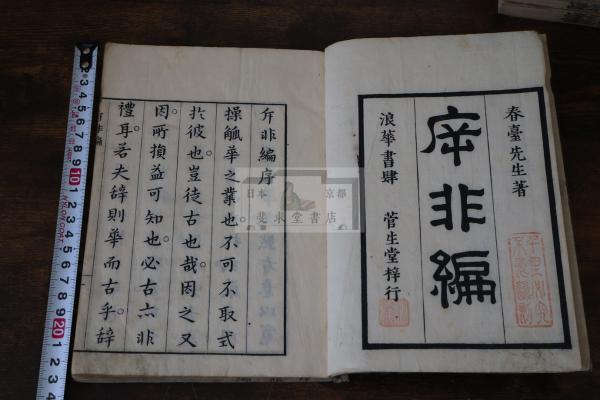 春臺先生著
斥非編
浪華書肆 菅生堂梓行
斥非編序
操觚華之業也不可不取式
於彼也豈徒古也哉因之又
因所損益可知也必古亦非
禮耳若夫辞則華而古乎辞
日本 京都
斐永堂書店